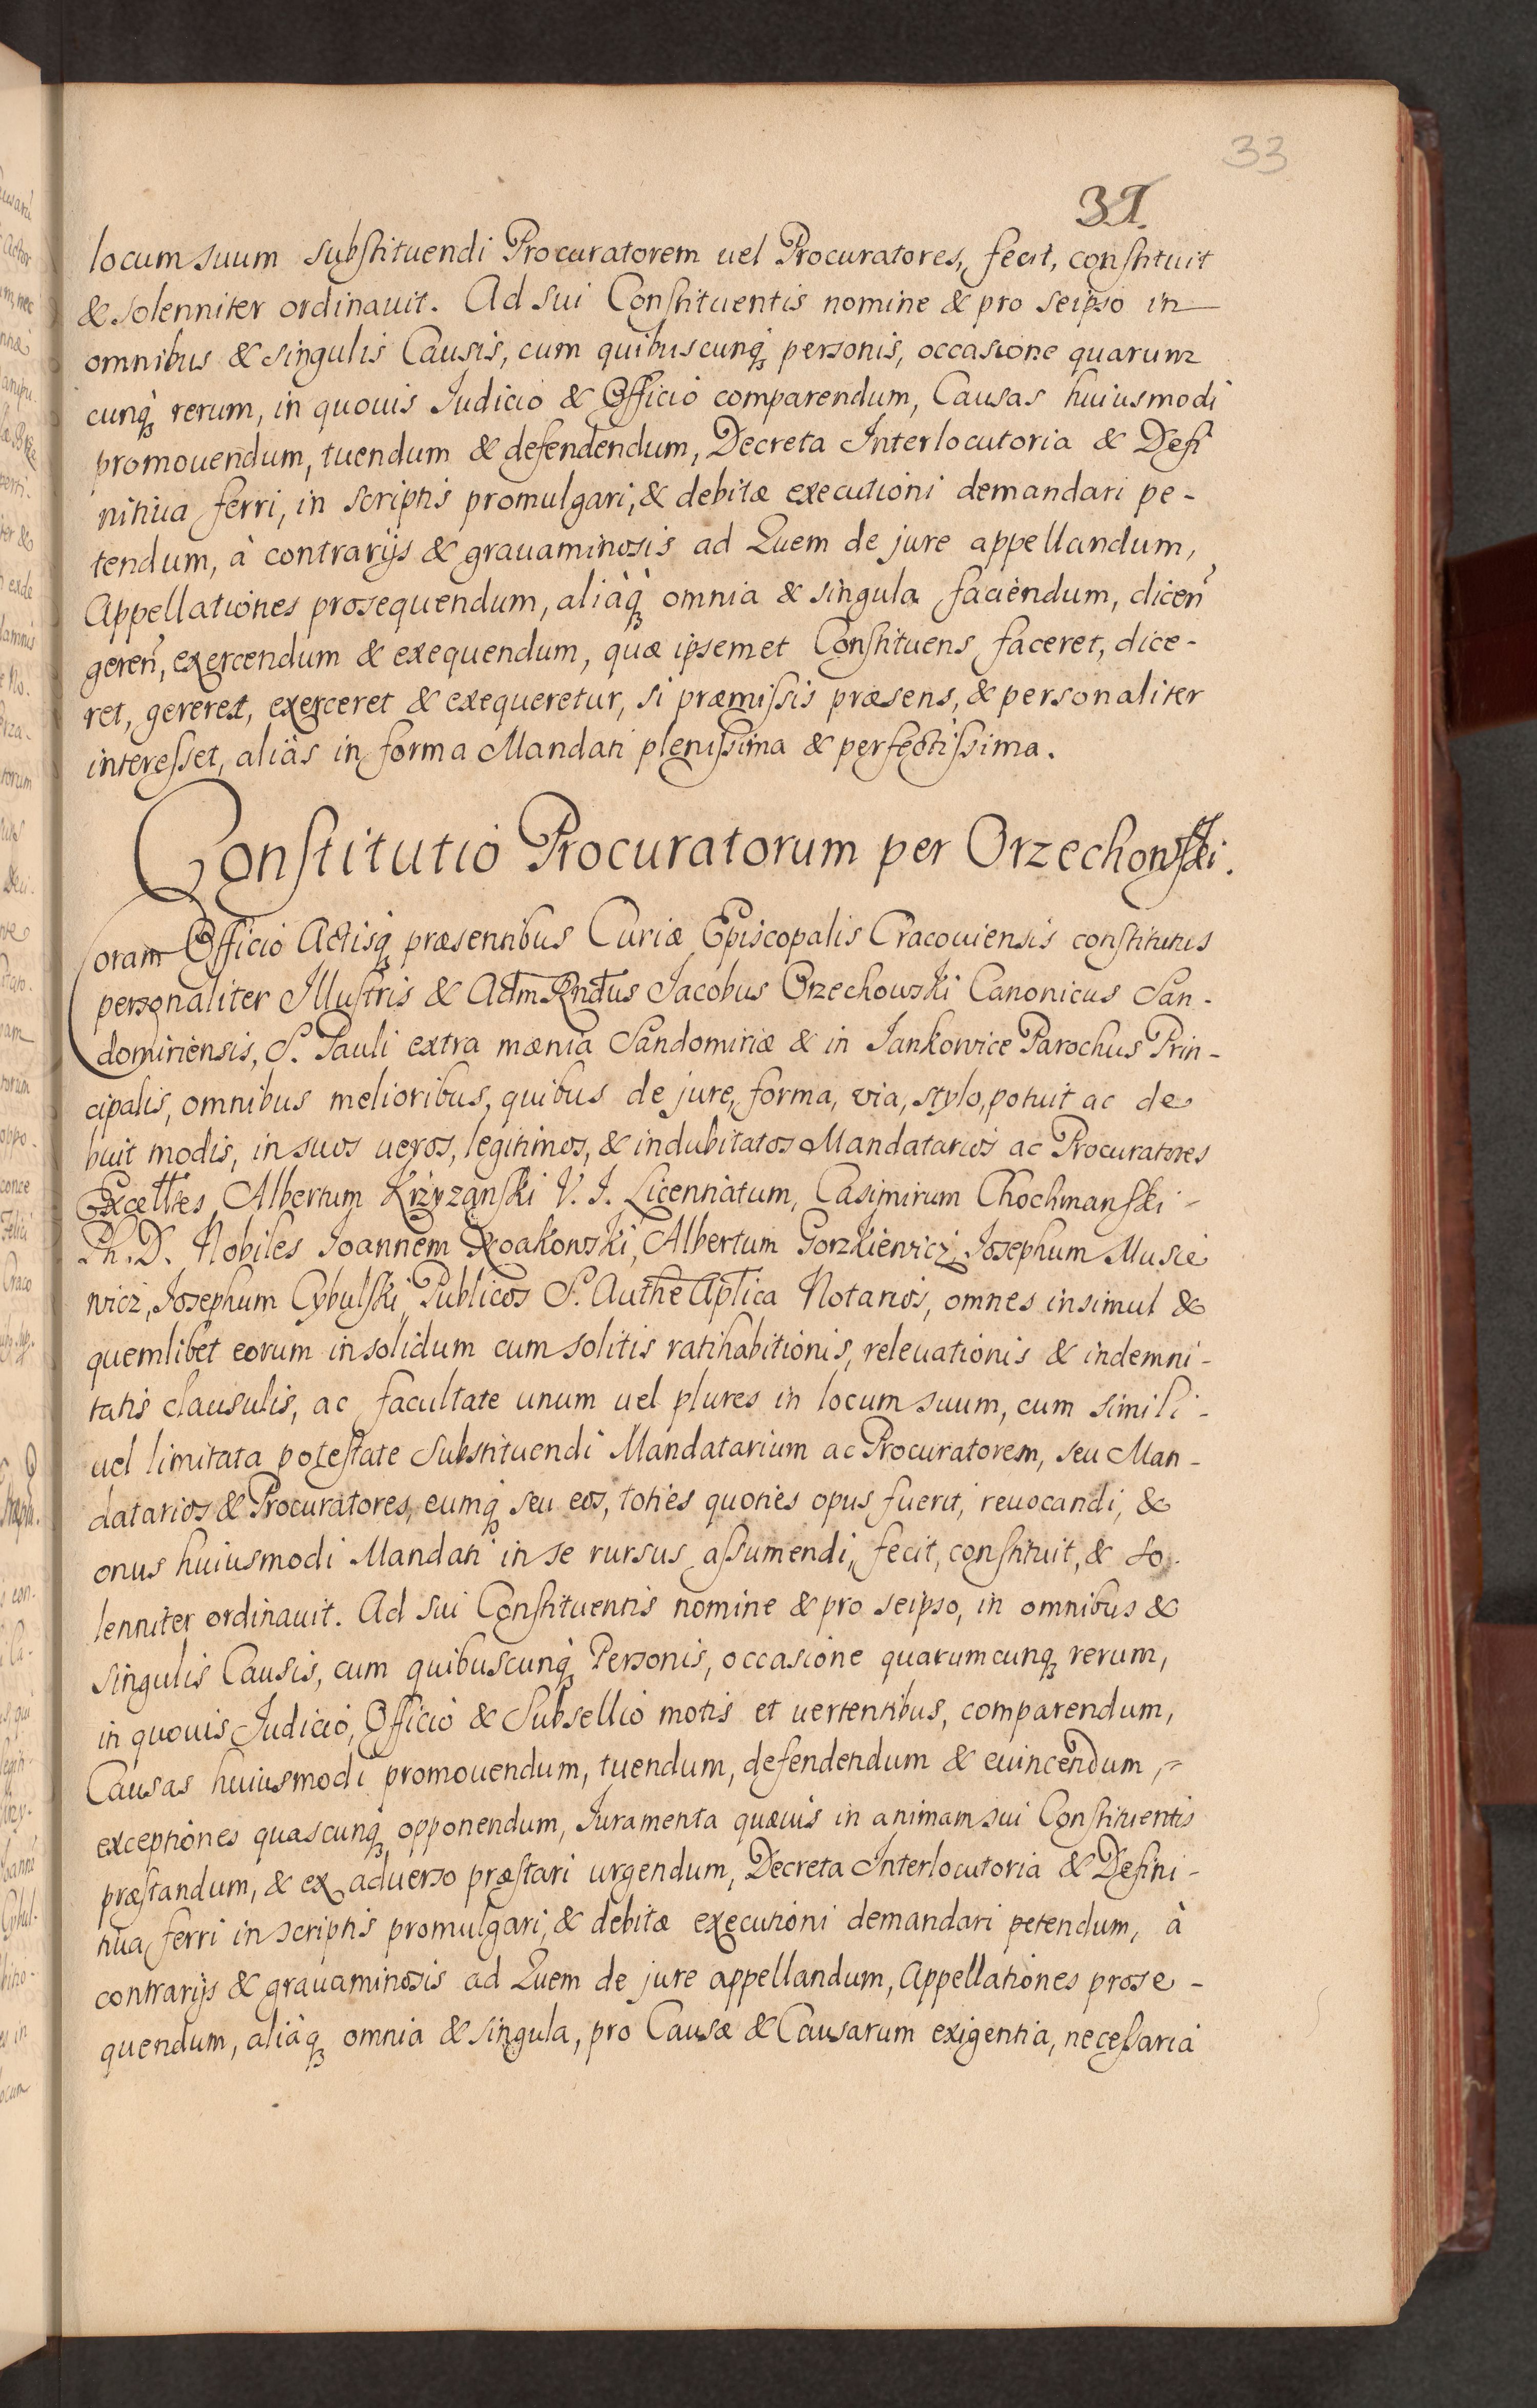 33
31.
locum suum substituendi Procuratorem uel Procuratores, fecit, constituit
& solenniter ordinauit. Ad sui Constituentis nomine & pro seipso in
omnibus & singulis Causis, cum quibuscunq́ꝫ personis, occasione quarum
cunq́ꝫ rerum, in quouis Iudicio & Officio comparendum, Causas huiusmodi
promouendum, tuendum & defendendum, Decreta Interlocutoria & Defi
nitiua ferri, in scriptis promulgari, & debitæ executioni demandari pe-
tendum, à contrarijs & grauaminosis ad Quem de jure appellandum,
Appellationes prosequendum, aliàq̀ꝫ omnia & singula faciendum, dicen̄
geren̄, exercendum & exequendum, quæ ipsemet Constituens faceret, dice-
ret, gereret, exerceret & exequeretur, si præmissis præsens, & personaliter
interesset, aliàs in forma Mandati plenissima & perfectissima.
Constitutio Procuratorum per Orzechowski.
Coram Officio Actisq́ꝫ præsentibus Curiæ Episcopalis Cracouiensis constitutus
personaliter Illustris & Adm Rndus Jacobus Orzechowski Canonicus San-
domiriensis, S. Pauli extra mænia Sandomiriæ & in Jankowice Parochus Prin-
cipalis, omnibus melioribus, quibus de jure, forma, via, stylo, potuit ac de
buit modis, in suos ueros, legitimos, & indubitatos Mandatarios ac Procuratores
Excelltes Albertum Krzyzanski V. J. Licentiatum, Casimirum Chochmanski -
Ph. D. Nobiles Joannem Albertum Gorzkiewicz, Josephum Musie
wicz, Josephum Cybulski, Publicos S. Authe Aplica Notarios, omnes insimul &
quemlibet eorum in solidum cum solitis ratihabitionis, releuationis & indemni-
tatis clausulis, ac facultate unum uel plures in locum suum, cum simili -
uel limitata potestate substituendi Mandatarium ac Procuratorem, seu Man-
datarios & Procuratores, eumq́ꝫ seu eos, toties quoties opus fuerit, reuocandi, &
onus huiusmodi Mandati in se rursus assumendi, fecit, constituit, & so-
lenniter ordinauit. Ad sui Constituentis nomine & pro seipso, in omnibus &
singulis Causis, cum quibuscunq̀ꝫ Personis, occasione quarumcunqꝫ rerum,
in quouis Judicio, Officio & Subsellio motis et uertentibus, comparendum,
Causas huiusmodi promouendum, tuendum, defendendum & euincendum, -
exceptiones quascunqꝫ opponendum, Juramenta quæuis in animam sui Constituentis
præstandum, & ex aduerso præstari urgendum, Decreta Interlocutoria & Defini-
tiua ferri in scriptis promulgari, & debitæ executioni demandari petendum, à
contrarijs & grauaminosis ad Quem de jure appellandum, Appellationes prose-
quendum, aliàqꝫ omnia & singula, pro Causæ & Causarum exigentia, necessaria